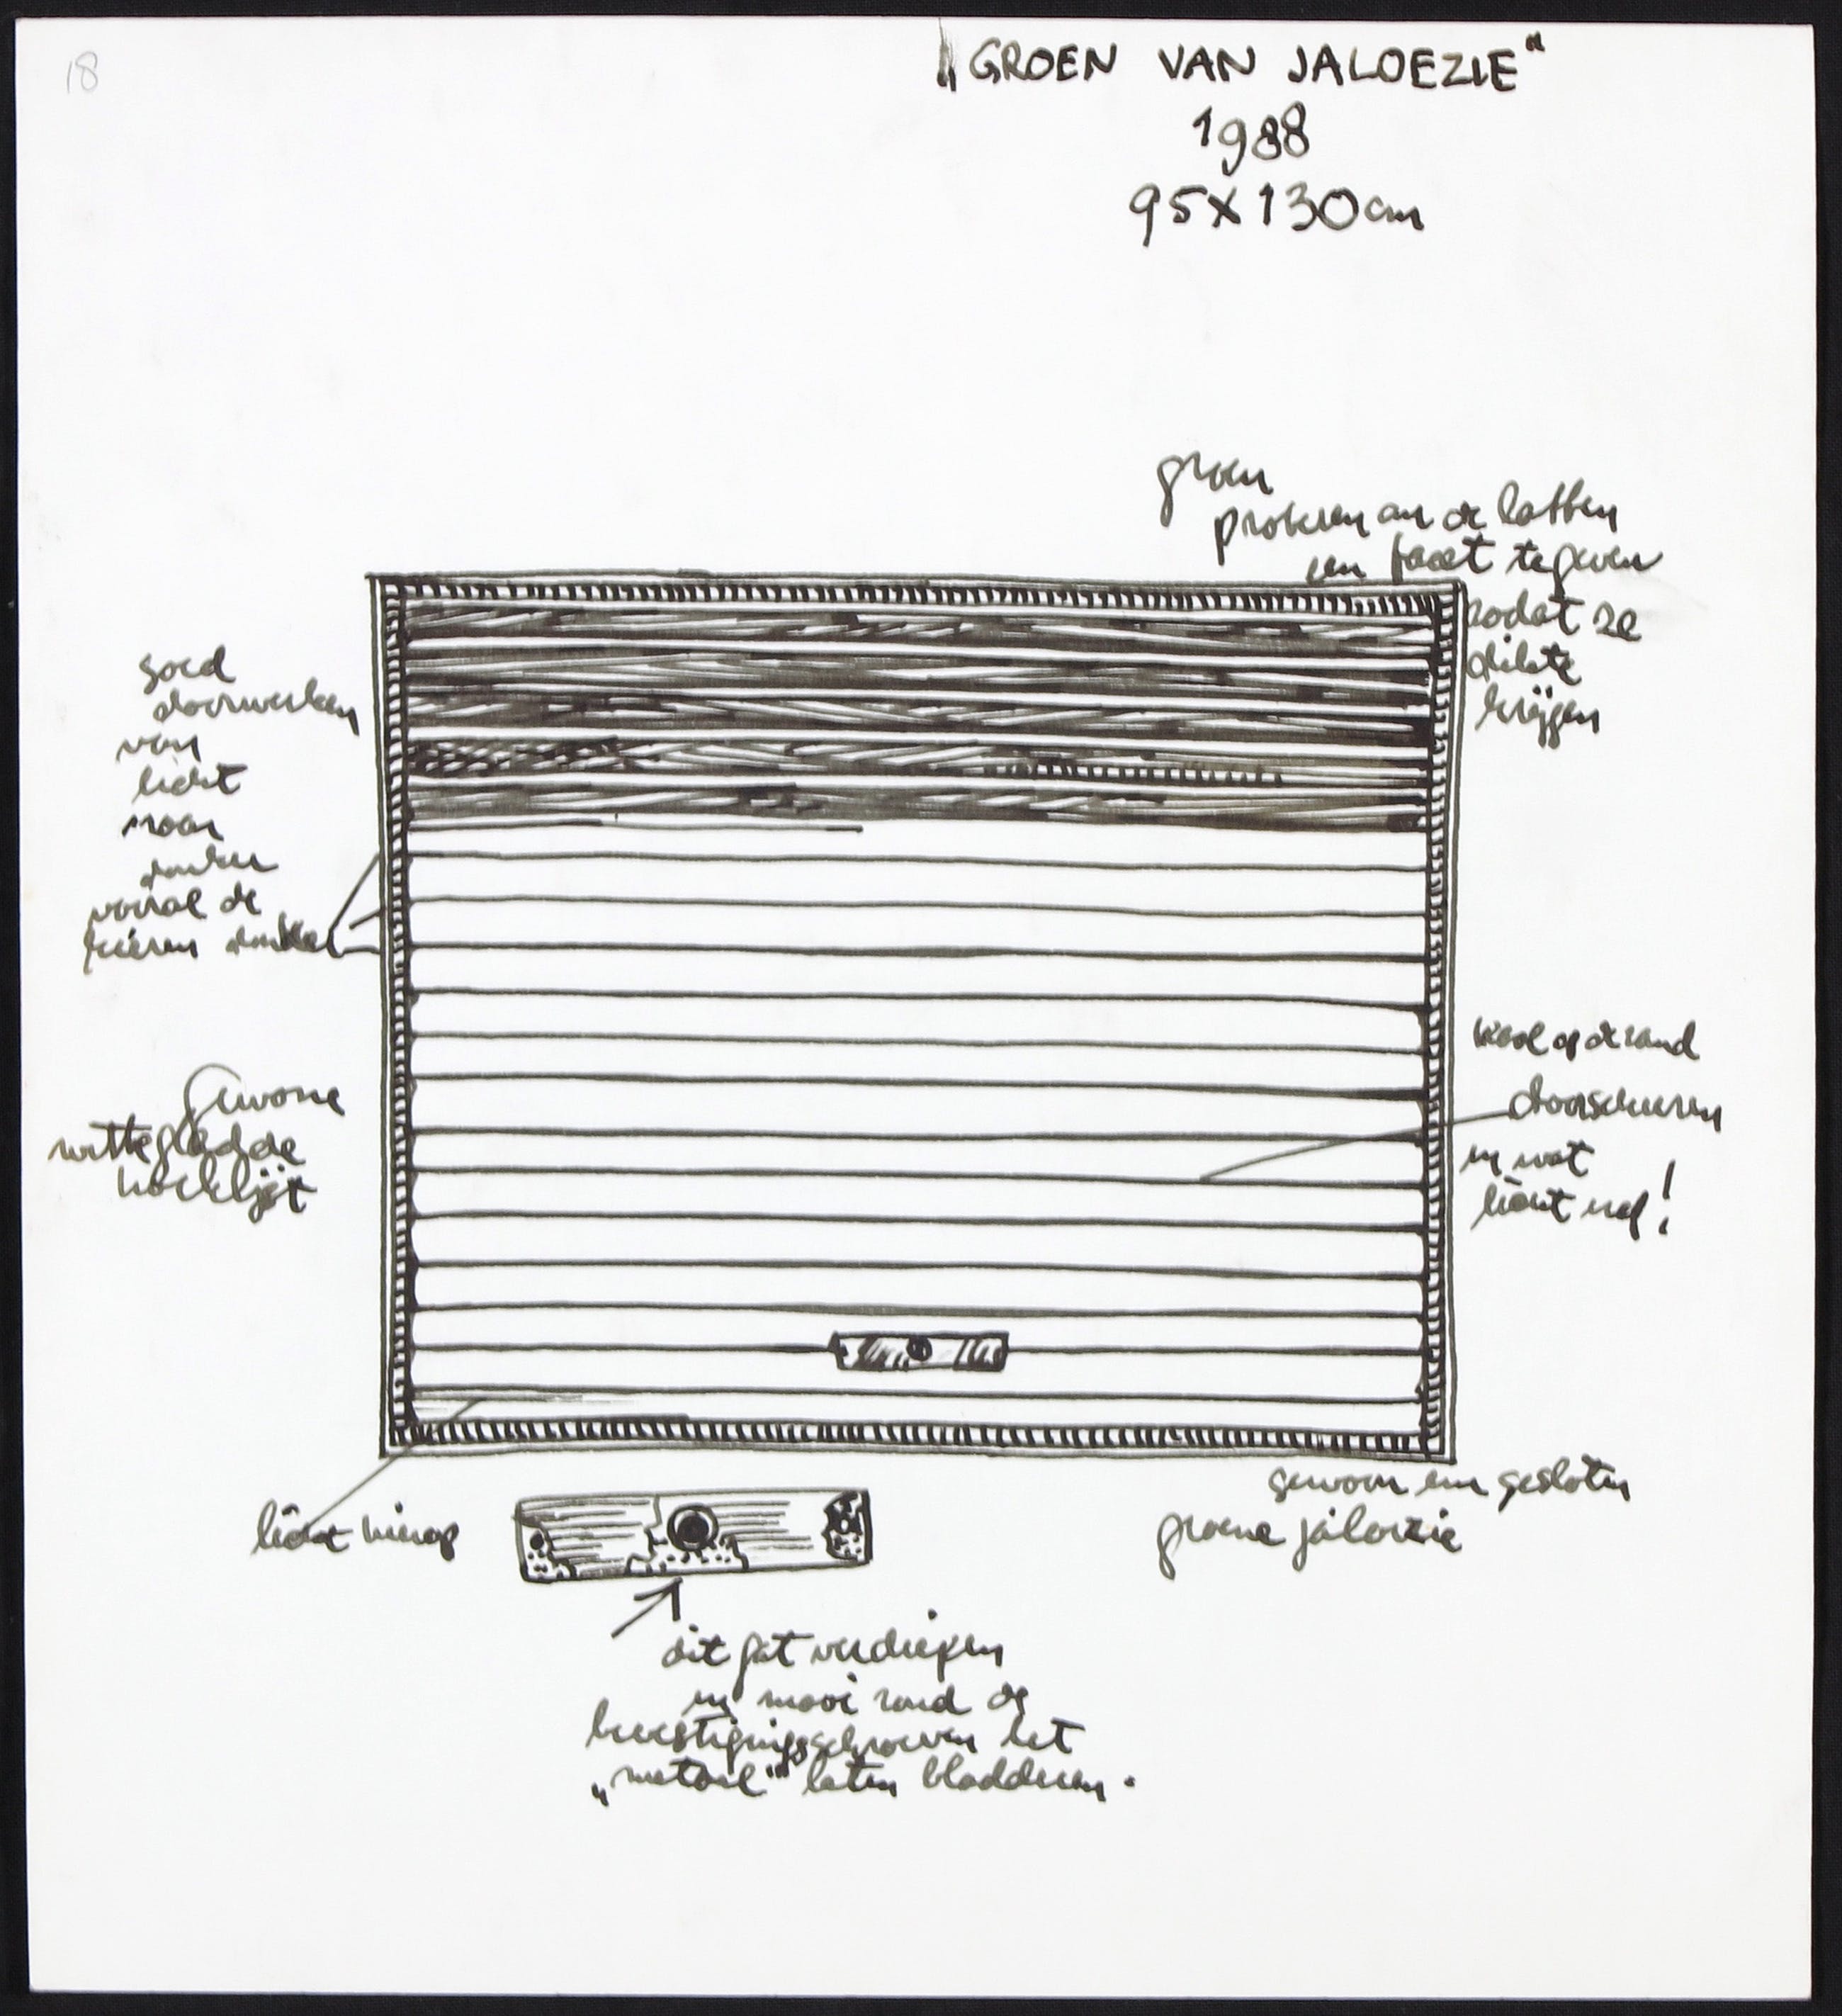 18
„GROEN VAN JALOEZIE"
1988
95 x 130 cm
groen
proberen an de latten
een facet te geven
zodat ze
dikte
krijgen
goed
doorwerken
van
licht
naar
donker
vooral de
kieren donker
Gewone
witte gladde
hoeklijst
op de rand
doorschuren
en wat
licht
licht hierop
gewoon een gesloten
groene jaloezie
dit gat verdiepen
en mooi rond de
bevestigingsschroeven het
„metaal" laten bladderen.